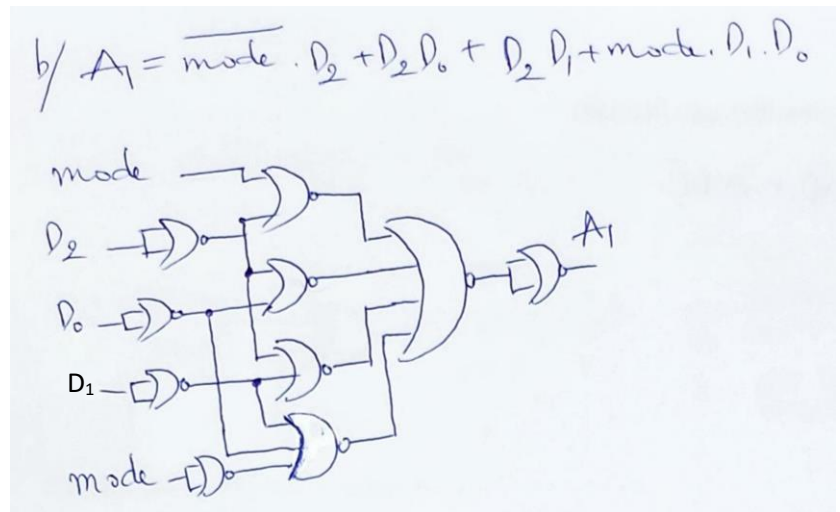 b/ A₁ = \overline{mode} . D₂ + D₂ D₀ + D₂ D₁ + mode . D₁ . D₀
mode
A₁
D₂
D₀
D₁
mode